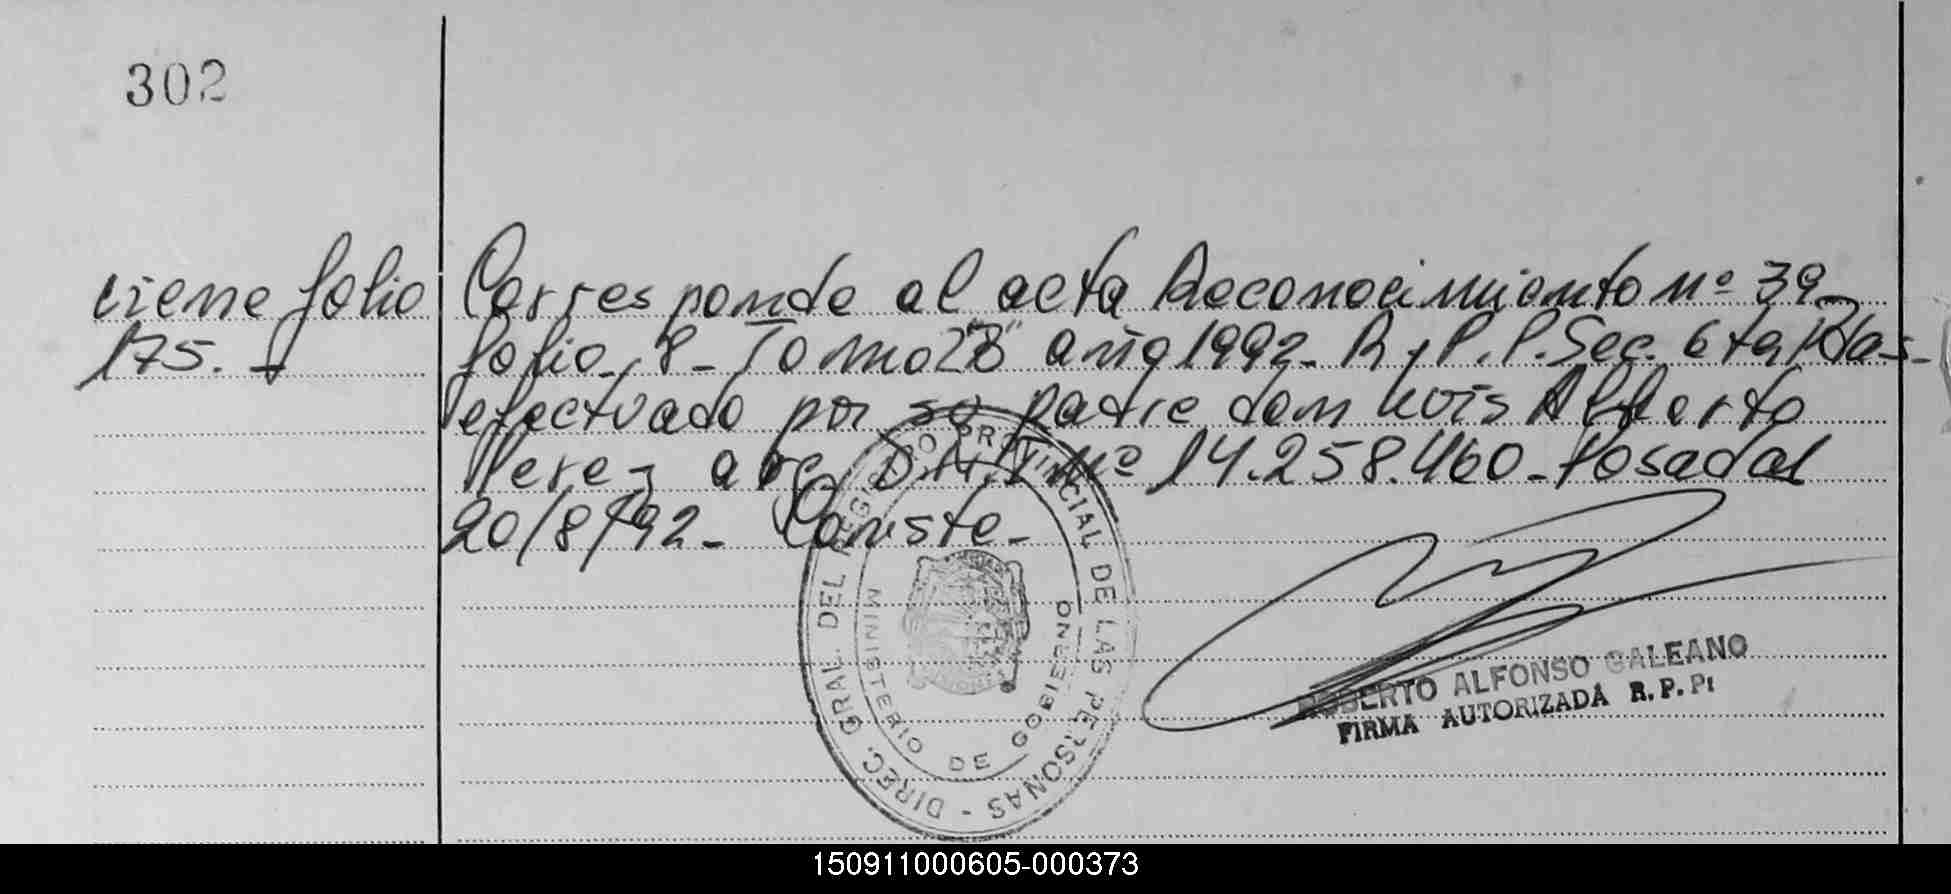 302
viene folio
175.
Corresponde al acta Reconocimiento nº 39
folio, 8_ Tomo 2"B" año 1992_ R, P.P. Sec. 6ta Pdas_
efectuado por su padre don Luis Alberto
Perez arg D.N.I. Nº 14.258.460_ Posadas
20/8/92_ Conste_
DIREC. GRAL. DEL REGISTRO PROVINCIAL DE LAS PERSONAS -
MINISTERIO DE GOBIERNO
MISIONES
ROBERTO ALFONSO GALEANO
FIRMA AUTORIZADA R.P.P.
150911000605-000373